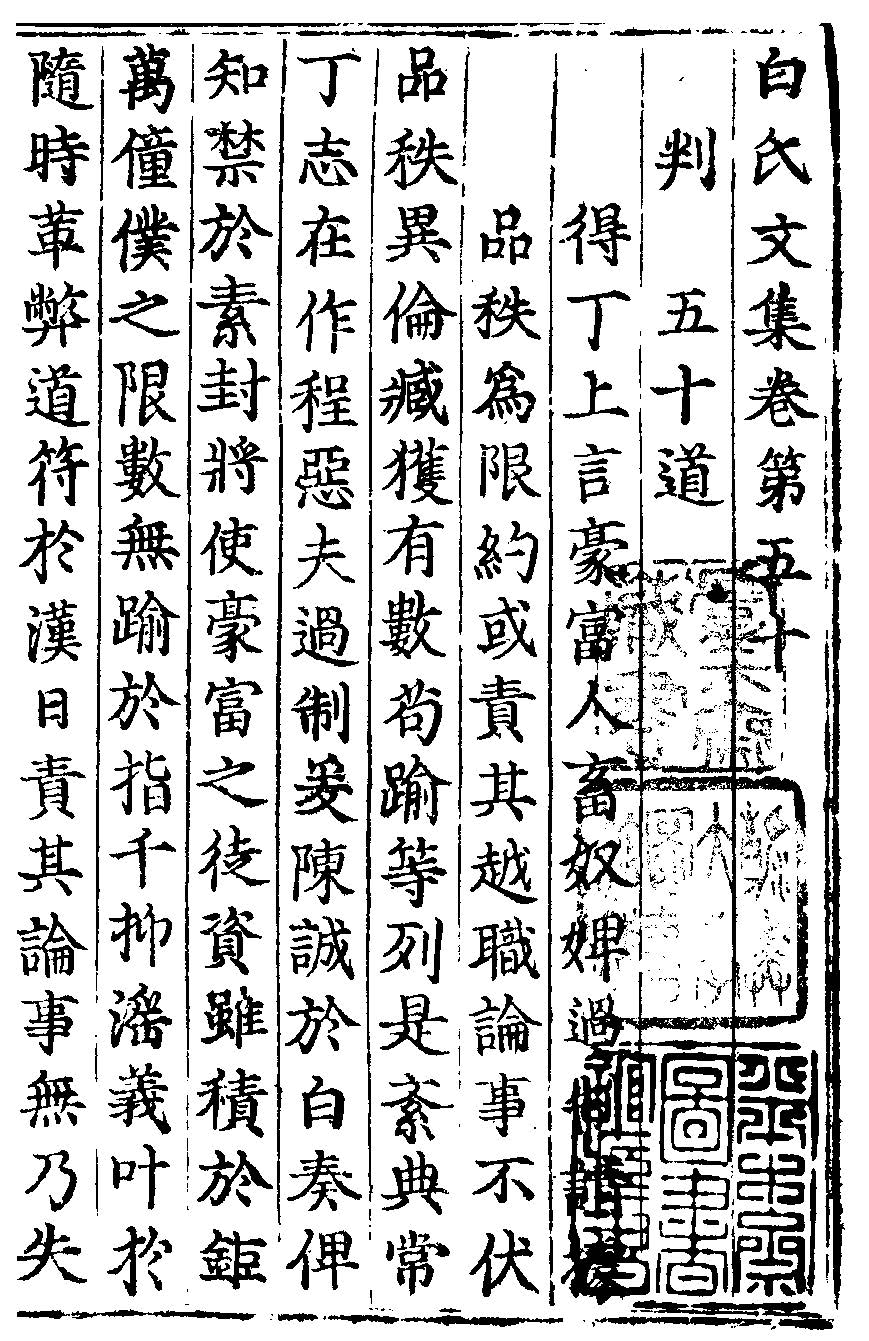 白氏文集卷第五十
判　五十道
得丁上言豪富人畜奴婢過制請據
品秩爲限約或責其越職論事不伏
品秩異倫臧獲有數苟踰等列是紊典常
丁志在作程惡夫過制爰陳誠於白奏俾
知禁於素封將使豪富之徒資雖積於鉅
萬僮僕之限數無踰於指千抑滛義叶於
隨時革弊道符於漢日責其論事無乃失
圖書